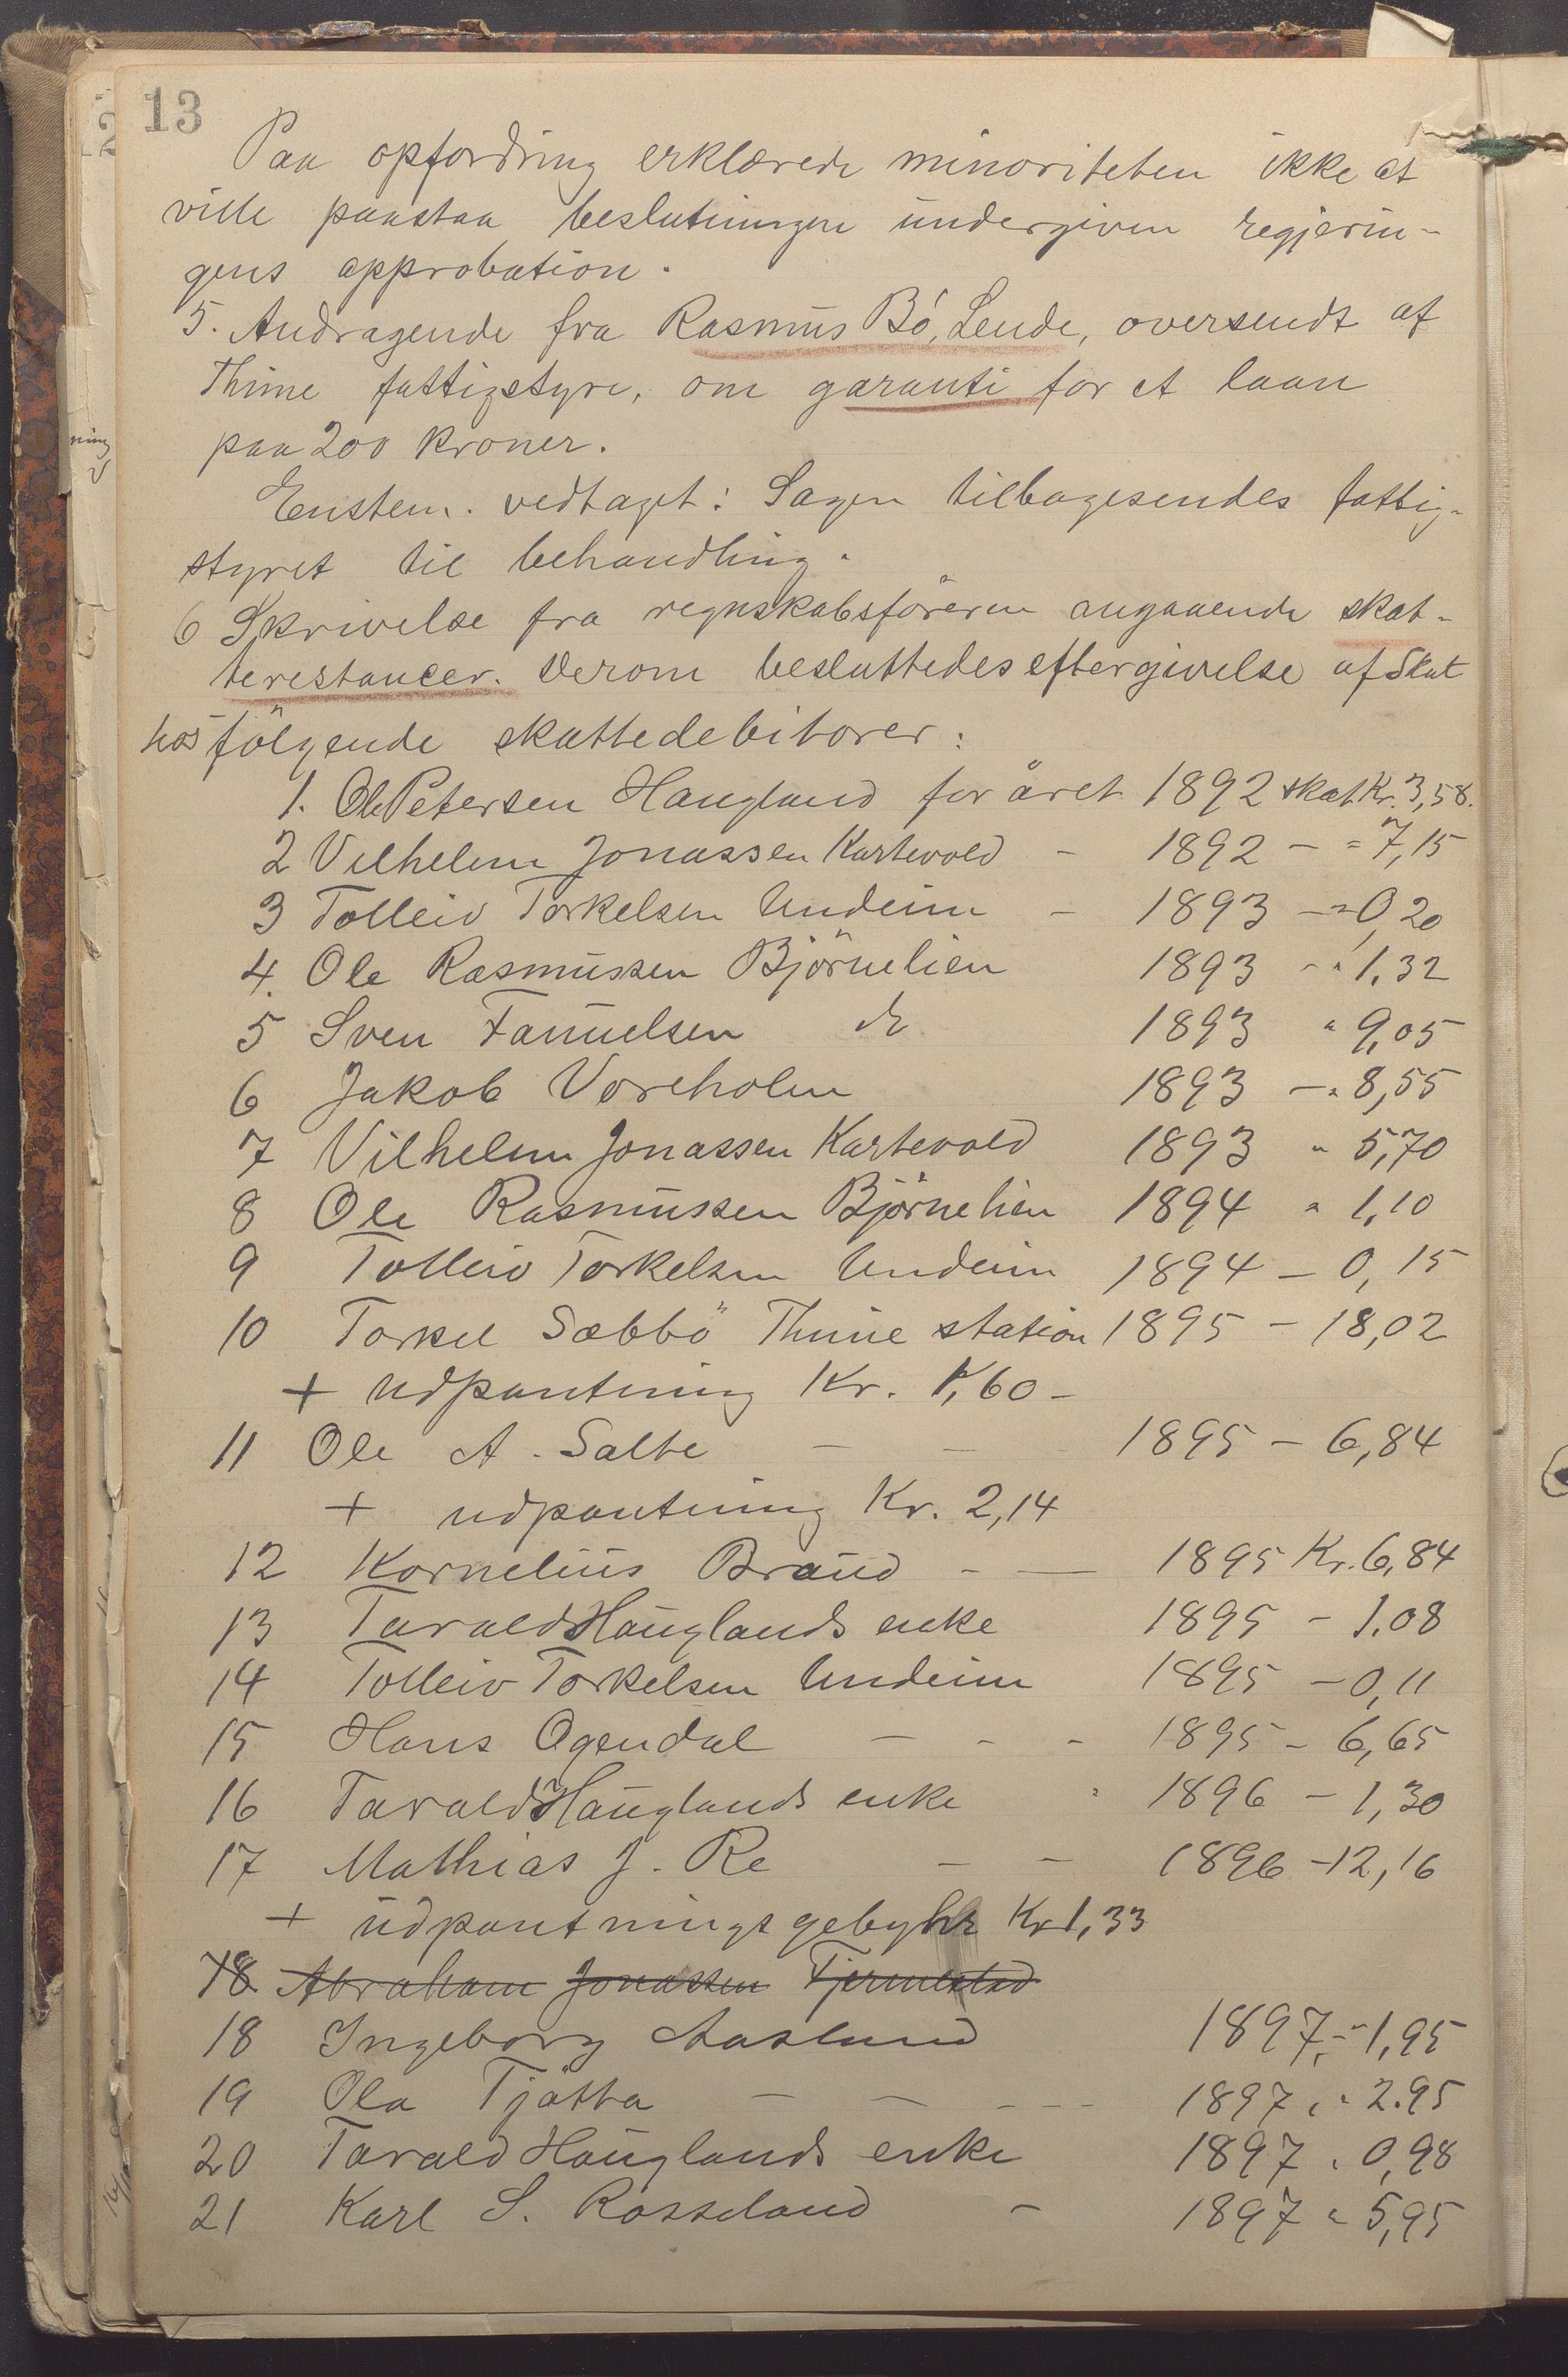 13
Paa opfordring erklærede minoriteten ikke at
ville paastaa beslutningen undergiven regjerin-
gens approbation.
5. Andragende fra Rasmus Bö, Lende, oversendt af
Thime fattigstyre, om garanti for et laan
paa 200 kroner.
Enstem. vedtaget: Sagen tilbagesendes fattig-
styret til behandling.
6 Skrivelse fra regnskabsföreren angaaende skat-
terestancer. Derom besluttedes eftergivelse af Skat
hos fölgende skattedebitorer:
1. Ole Petersen Haugland for året 1892 skat Kr. 3,58.
2 Vilhelm Jonassen Kartevold - 1892 - " 7,15
3 Tolleiv Torkelsen Undeim - 1893 - " 0,20
4. Ole Rasmussen Björnelien 1893 - " 1,32
5 Sven Samuelsen do 1893 " 9,05
6 Jakob Voreholm 1893 - " 8,55
7 Vilhelm Jonassen Kartevold 1893 " 5,70
8 Ole Rasmussen Björnelien 1894 " 1,10
9 Tolleiv Torkelsen Undeim 1894 - 0,15
10 Torkel Sæbbö Thime station 1895 - 18,02
+ udpantning Kr. 1,60 -
11 Ole A. Salte - - 1895 - 6,84
+ udpantning Kr. 2,14
12 Kornelius Braud - - 1895 Kr. 6,84
13 Tarald Hauglands enke 1895 - 1.08
14 Tolleiv Torkelsen Undeim 1895 - 0,11
15 Hans Ogendal - - - 1895 - 6,65
16 Tarald Hauglands enke " 1896 - 1,30
17 Mathias J. Re - - 1896 - 12,16
+ udpantningsgebyhr Kr 1,33
18 Abraham Jonassen Fjermestad
18 Ingeborg Aasland 1897 - " 1,95
19 Ola Tjötta - - - - - 1897 " 2.95
20 Tarald Hauglands enke 1897 " 0,98
21 Karl S. Rosseland - 1897 " 5,95